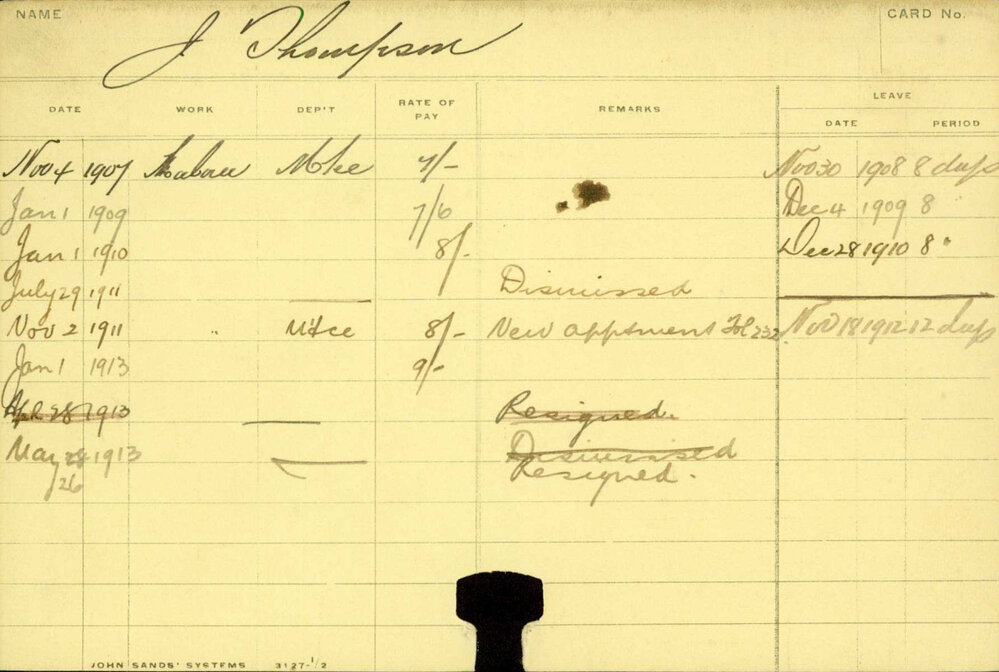 NAME CARD No.
J Thompson
DATE WORK DEP'T RATE OF PAY REMARKS LEAVE
DATE PERIOD
Nov 4 1907 Mtce 7/- Nov 30 1908 8 days
Jan 1 1909 7/6 Dec 4 1909 8 "
Jan 1 1910 8/- Dec 28 1910 8 "
July 29 1911 Dismissed
Nov 2 1911 " Mtce 8/- New apptment Fol 232 Nov 18 1912 12 days
Jan 1 1913 9/-
Apl 28 1913 Resigned.
May 28 1913 Dismissed
26 Resigned.
JOHN SANDS' SYSTEMS 3127-1/2